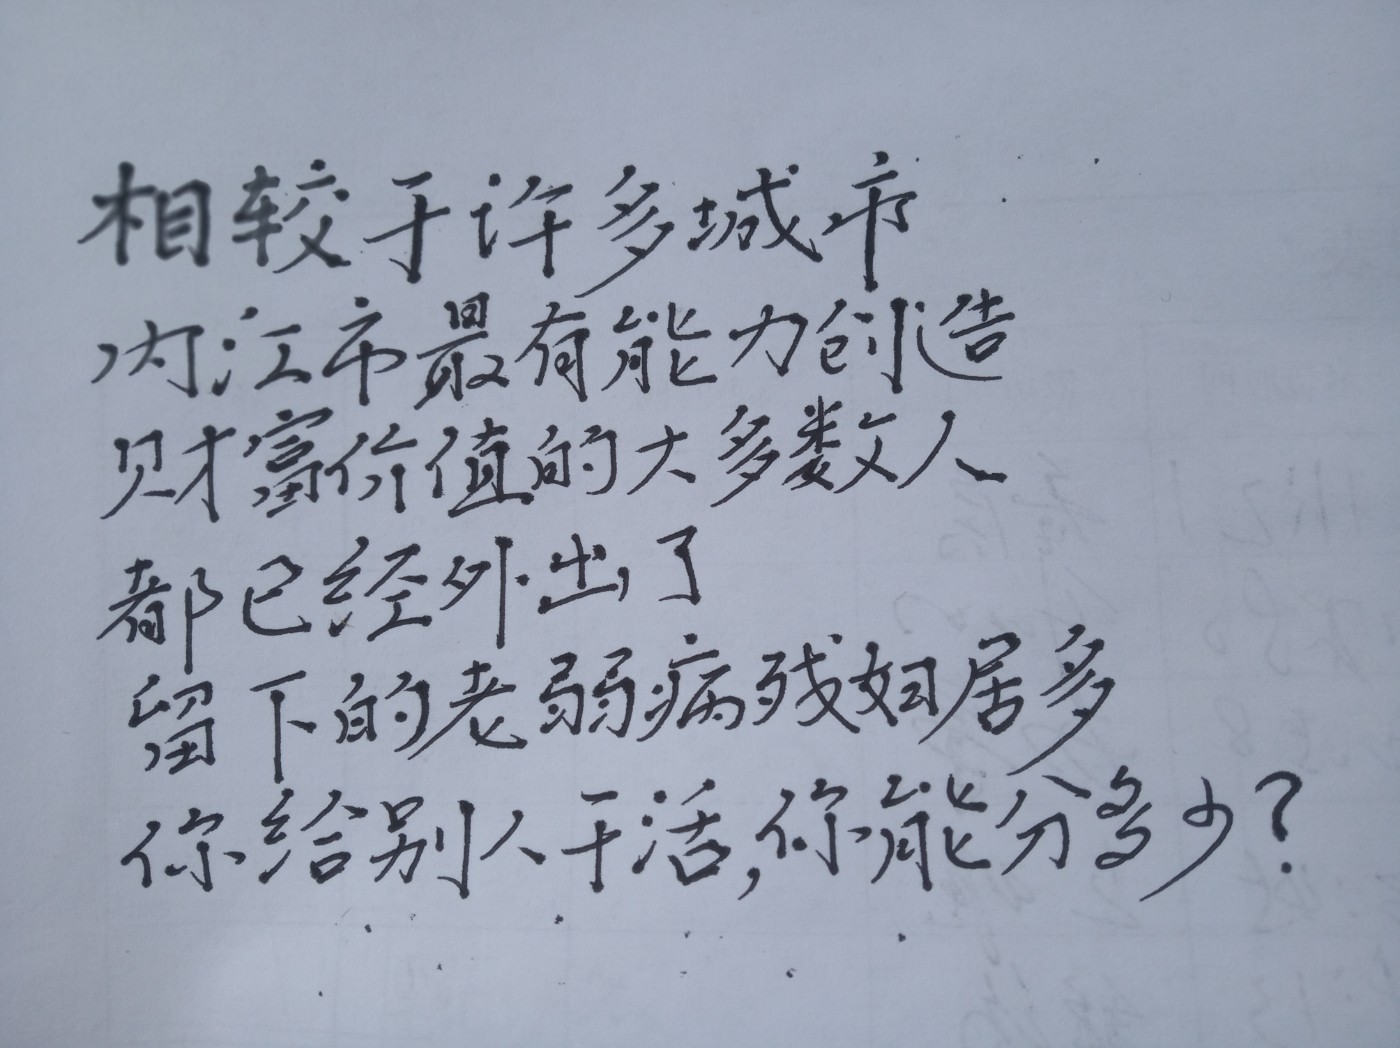 相较于许多城市
内江市最有能力创造
财富价值的大多数人
都已经外出了
留下的老弱病残妇居多
你给别人干活,你能分多少?